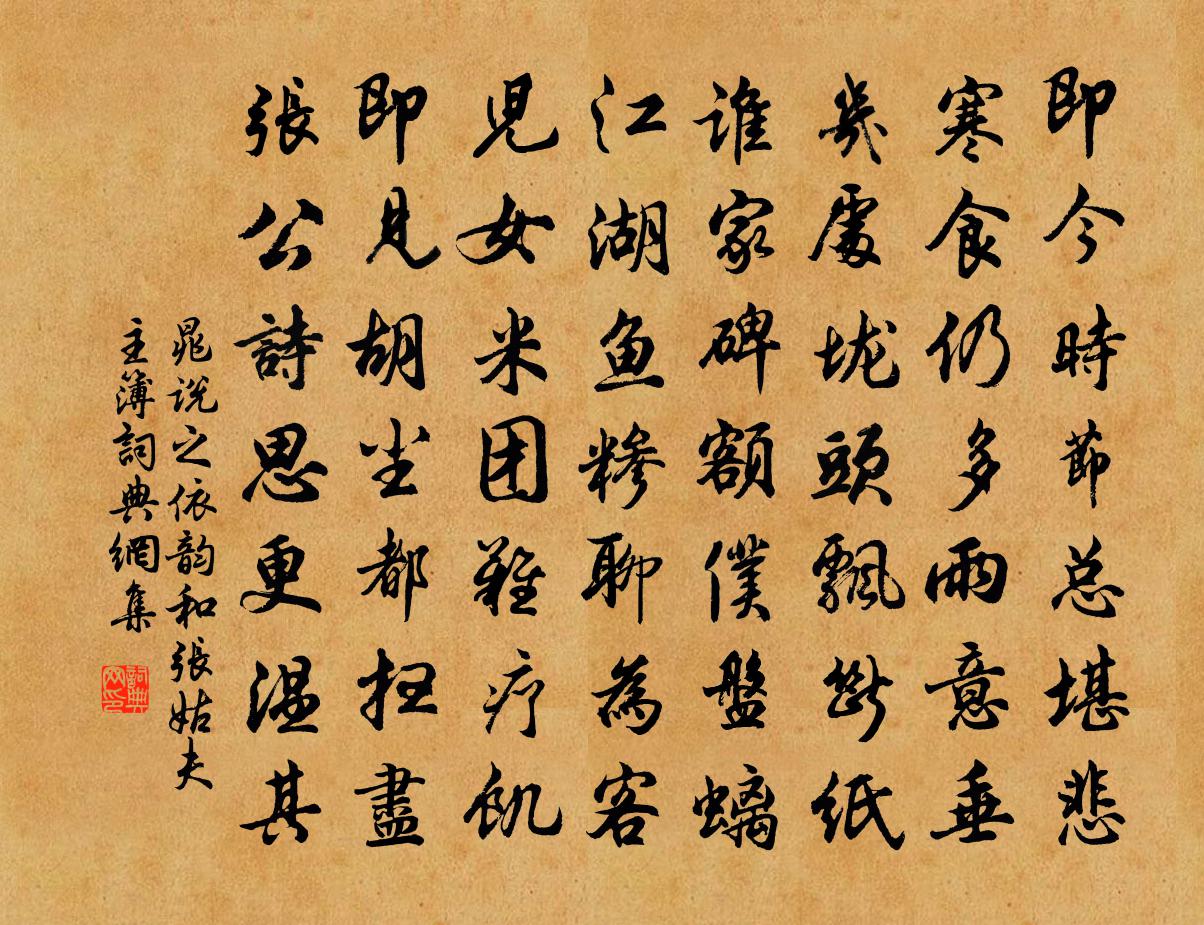 即今時節总堪悲
寒食仍多雨意垂
幾處垅頭飄斷紙
誰家碑額僕盤螭
江湖鱼糝聊為客
兒女米团難疗飢
即見胡尘都扫盡
張公詩思更温其
晁说之依韵和張姑夫
主簿詞典網集
詞典网印